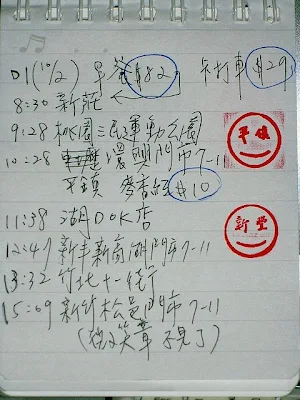 D1(10/2) 早餐$82 卡打車$29
8:30 新莊
9:28 桃園三民運動公園
10:28 環南門市7-11
平鎮 麥香紅$10
平鎮
11:38 湖口OK店
新豐
12:47 新丰新商湖門市7-11
13:32 竹北十一街
15:09 新竹松昌門市7-11
(微笑章不見了)